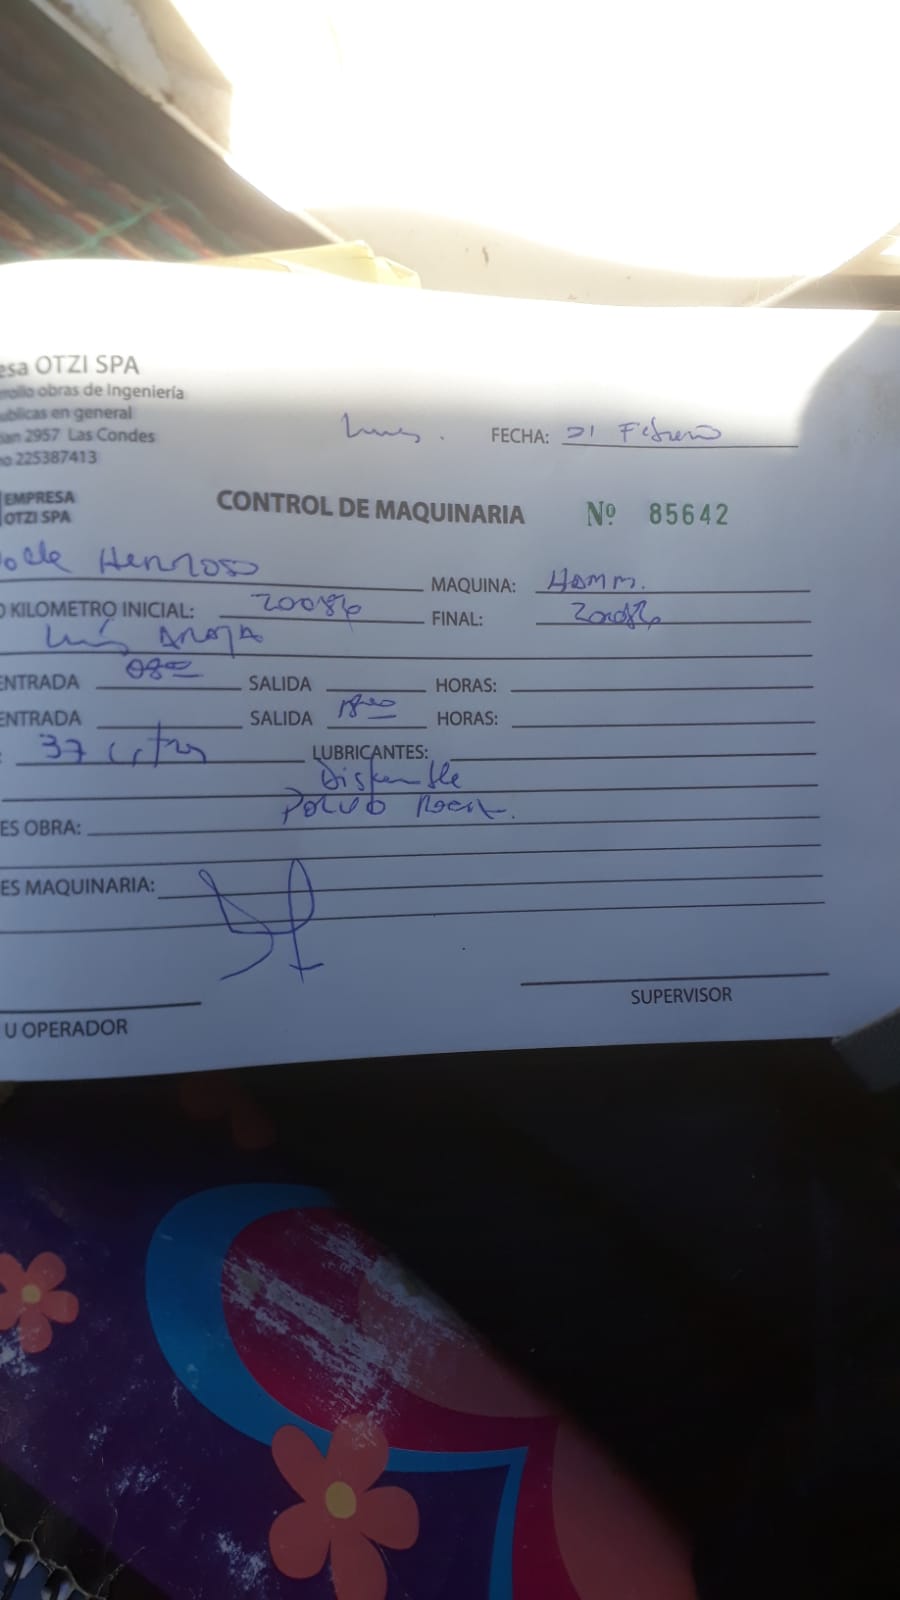 esa OTZI SPA
rrollo obras de Ingeniería
ublicas en general
ian 2957 Las Condes
no 225387413
Lunes. FECHA: 21 Febrero
EMPRESA
OTZI SPA
CONTROL DE MAQUINARIA Nº 85642
Valle Hermoso
MAQUINA: Hamm.
O KILOMETRO INICIAL: 20086 FINAL: 20086
Luis Araya
ENTRADA 08:00 SALIDA HORAS:
ENTRADA SALIDA 18:00 HORAS:
37 Litros LUBRICANTES:
Disponible
Polvo Roca.
ES OBRA:
ES MAQUINARIA:
SUPERVISOR
U OPERADOR